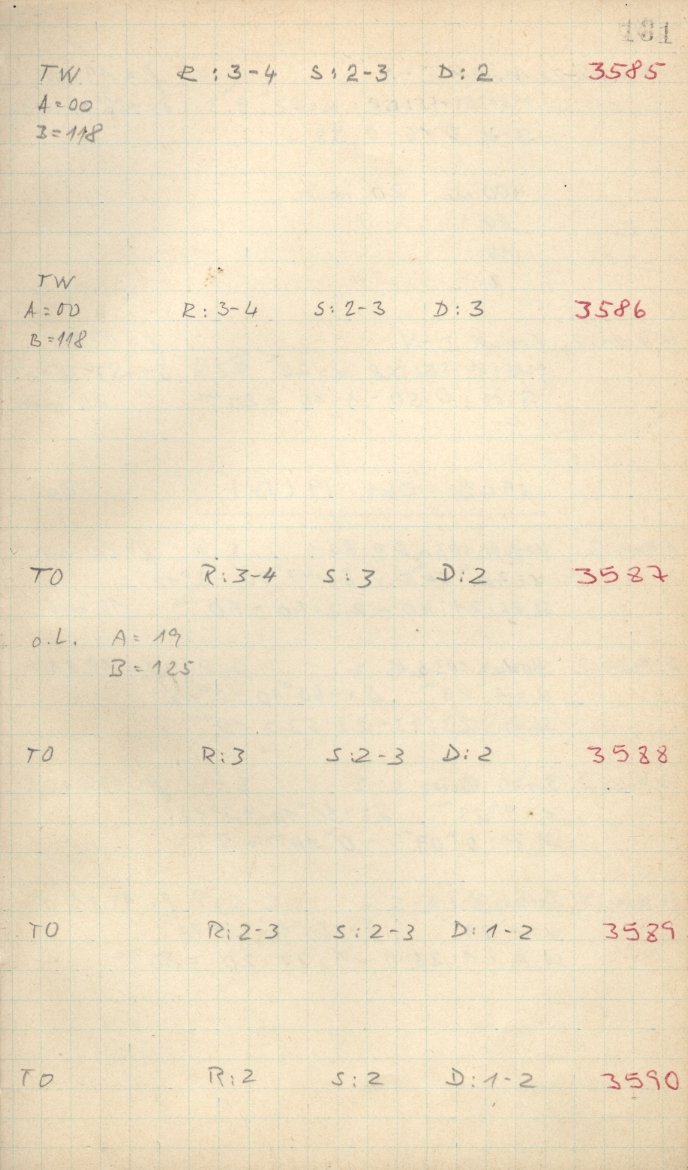 181
TW R:3-4 S:2-3 D:2 3585
A=00
B=118
TW
A=00 R:3-4 S:2-3 D:3 3586
B=118
TO R:3-4 S:3 D:2 3587
o.L. A=19
B=125
TO R:3 S:2-3 D:2 3588
TO R:2-3 S:2-3 D:1-2 3589
TO R:2 S:2 D:1-2 3590